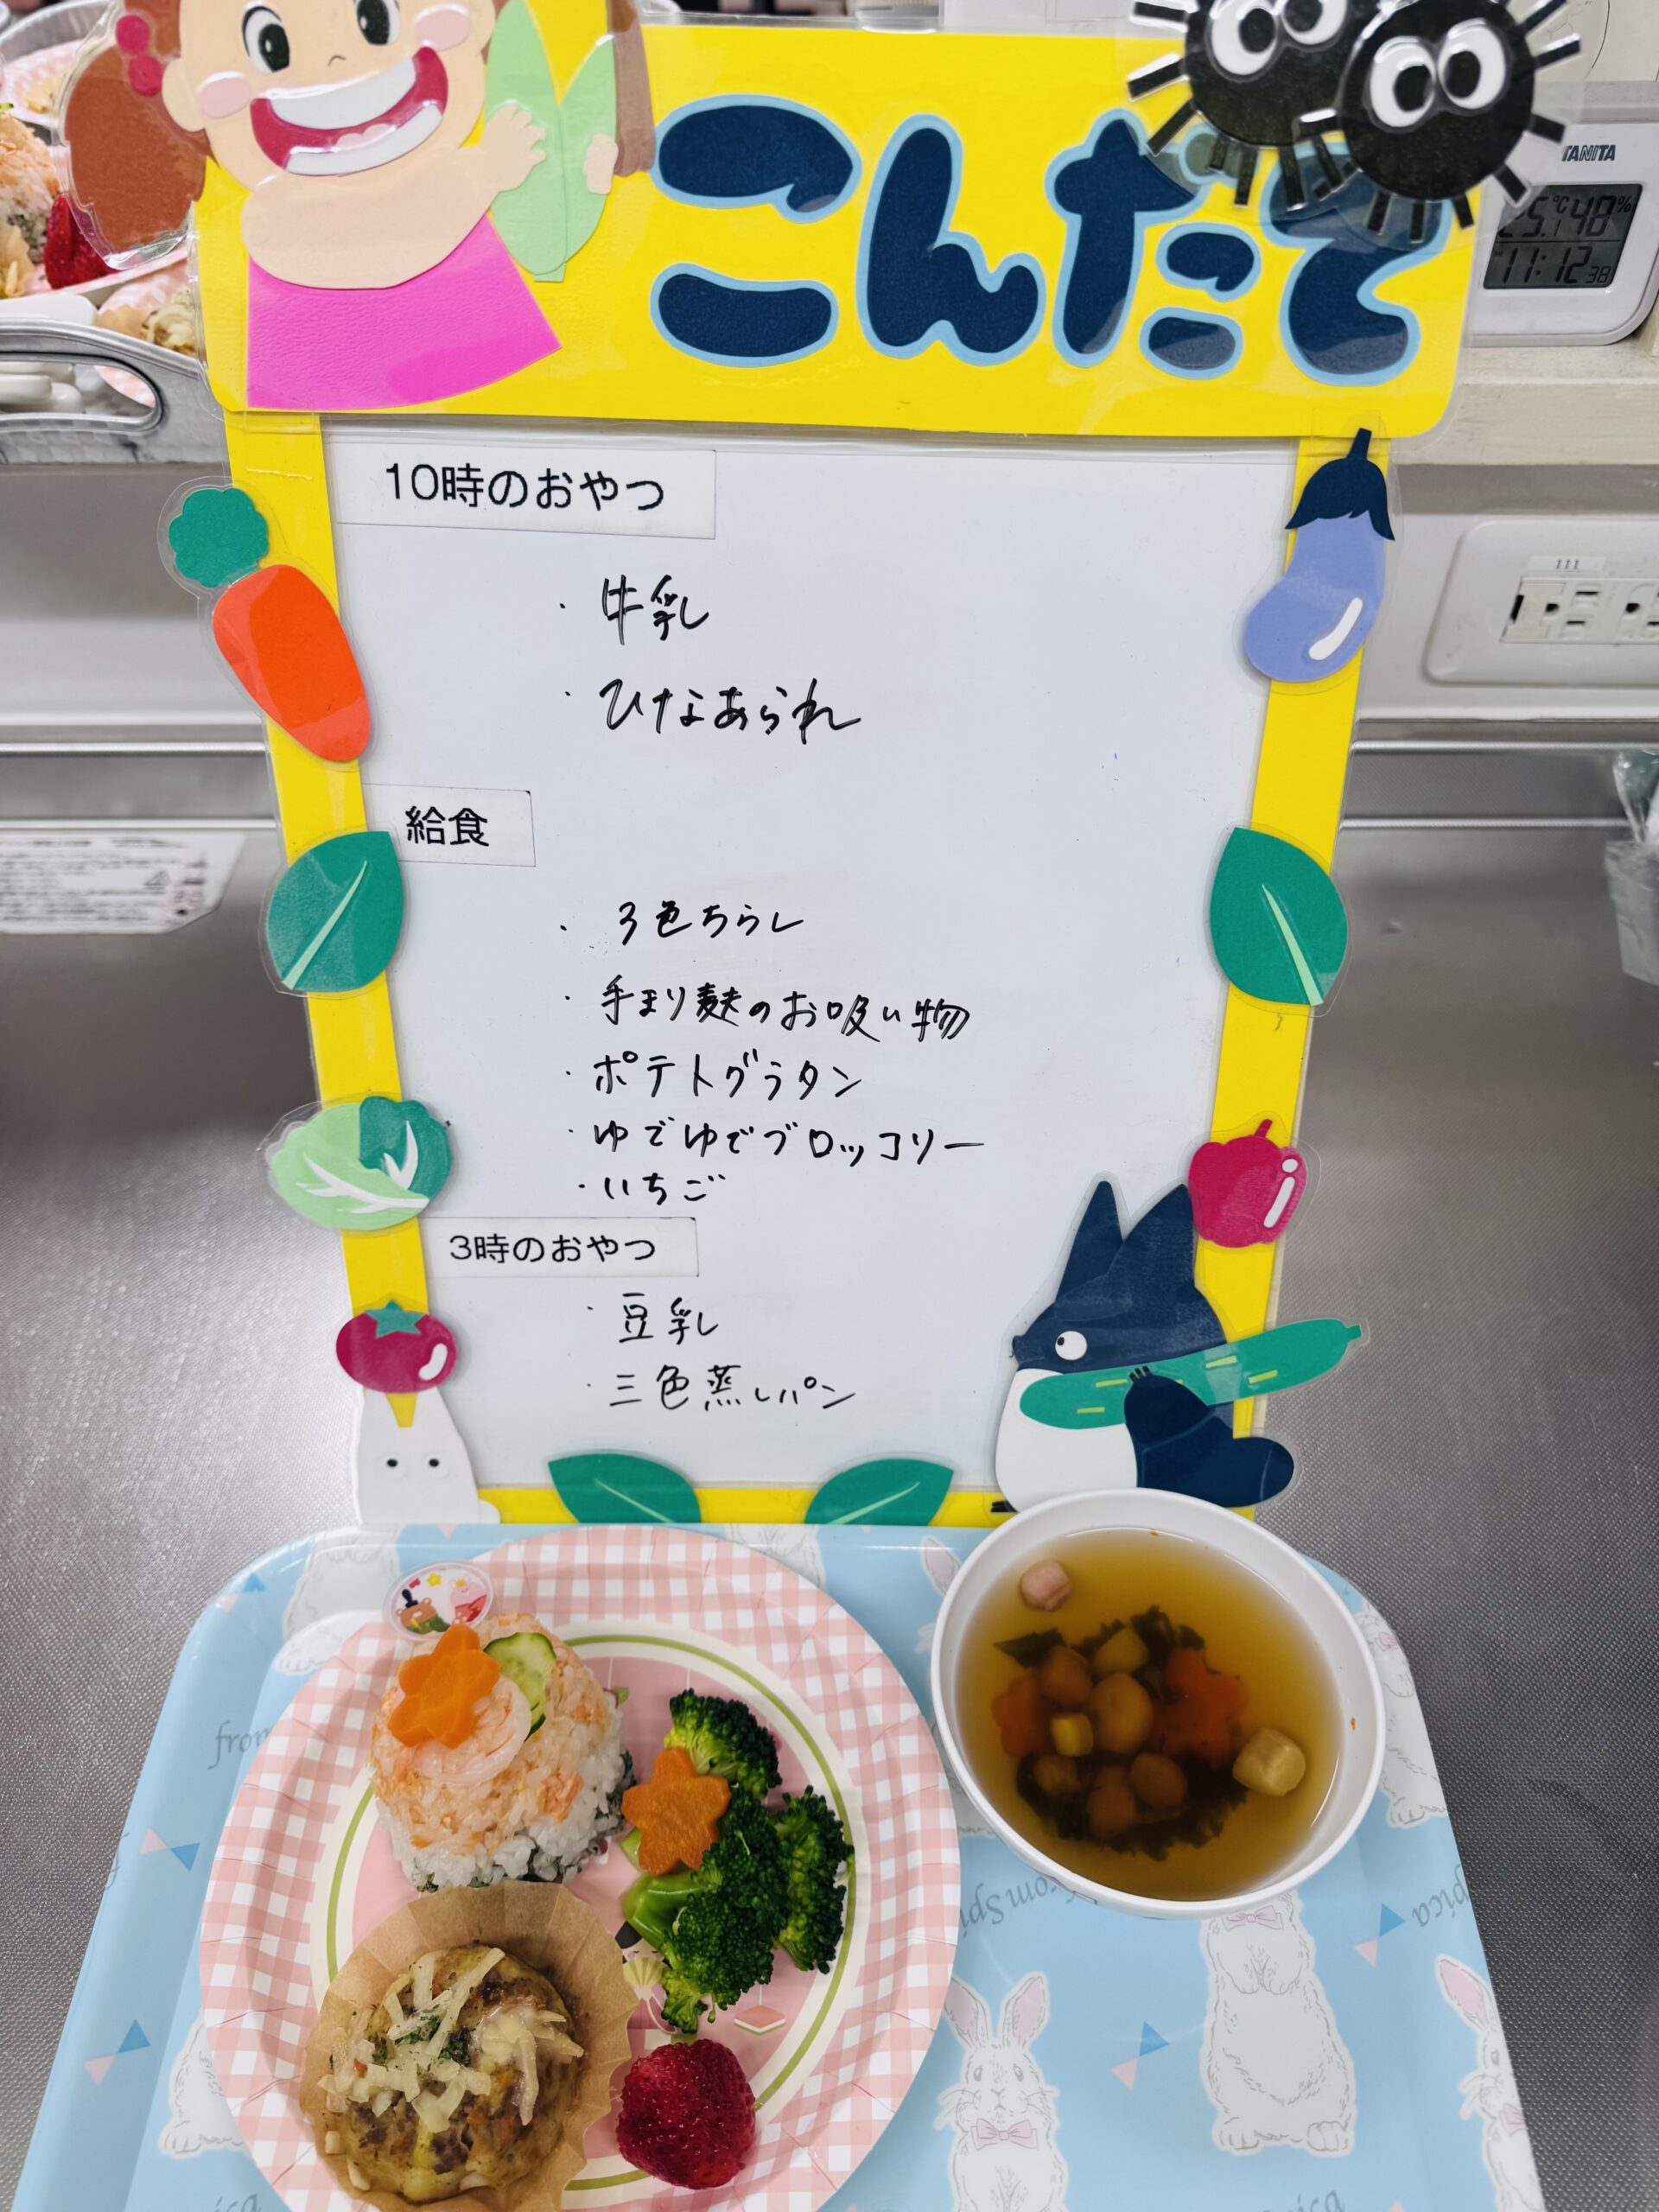 こんだて
TANITA
25.1℃ 48%
11:12 38
10時のおやつ
・牛乳
・ひなあられ
給食
・3色ちらし
・手まり麩のお吸い物
・ポテトグラタン
・ゆでゆでブロッコリー
・いちご
3時のおやつ
・豆乳
・三色蒸しパン
from
from Spi
pica
pica
pica